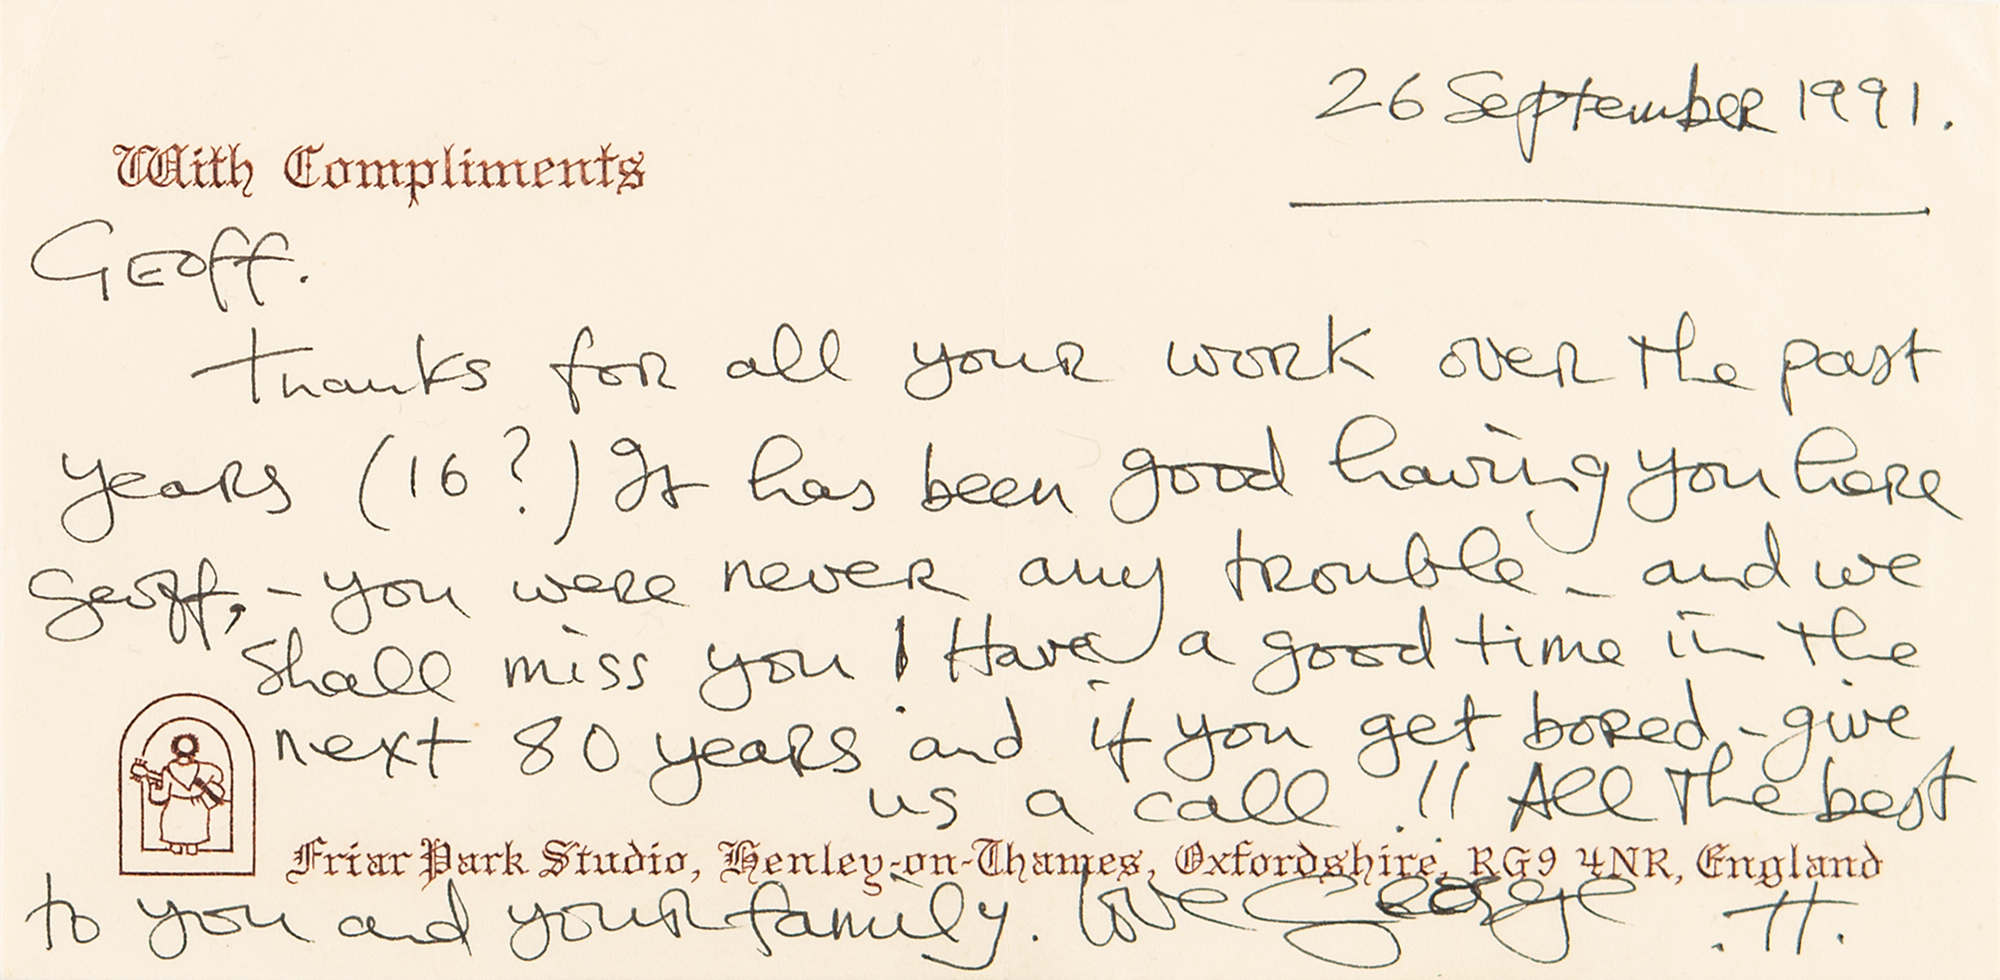 26 September 1991.
With Compliments
GEOFF.
Thanks for all your work over the past
years (16?) It has been good having you here
Geoff, - you were never any trouble - and we
shall miss you! Have a good time in the
next 80 years and if you get bored - give
us a call !! All the best
Friar Park Studio, Henley-on-Thames, Oxfordshire, RG9 4NR, England
to you and your family. Love George .H.